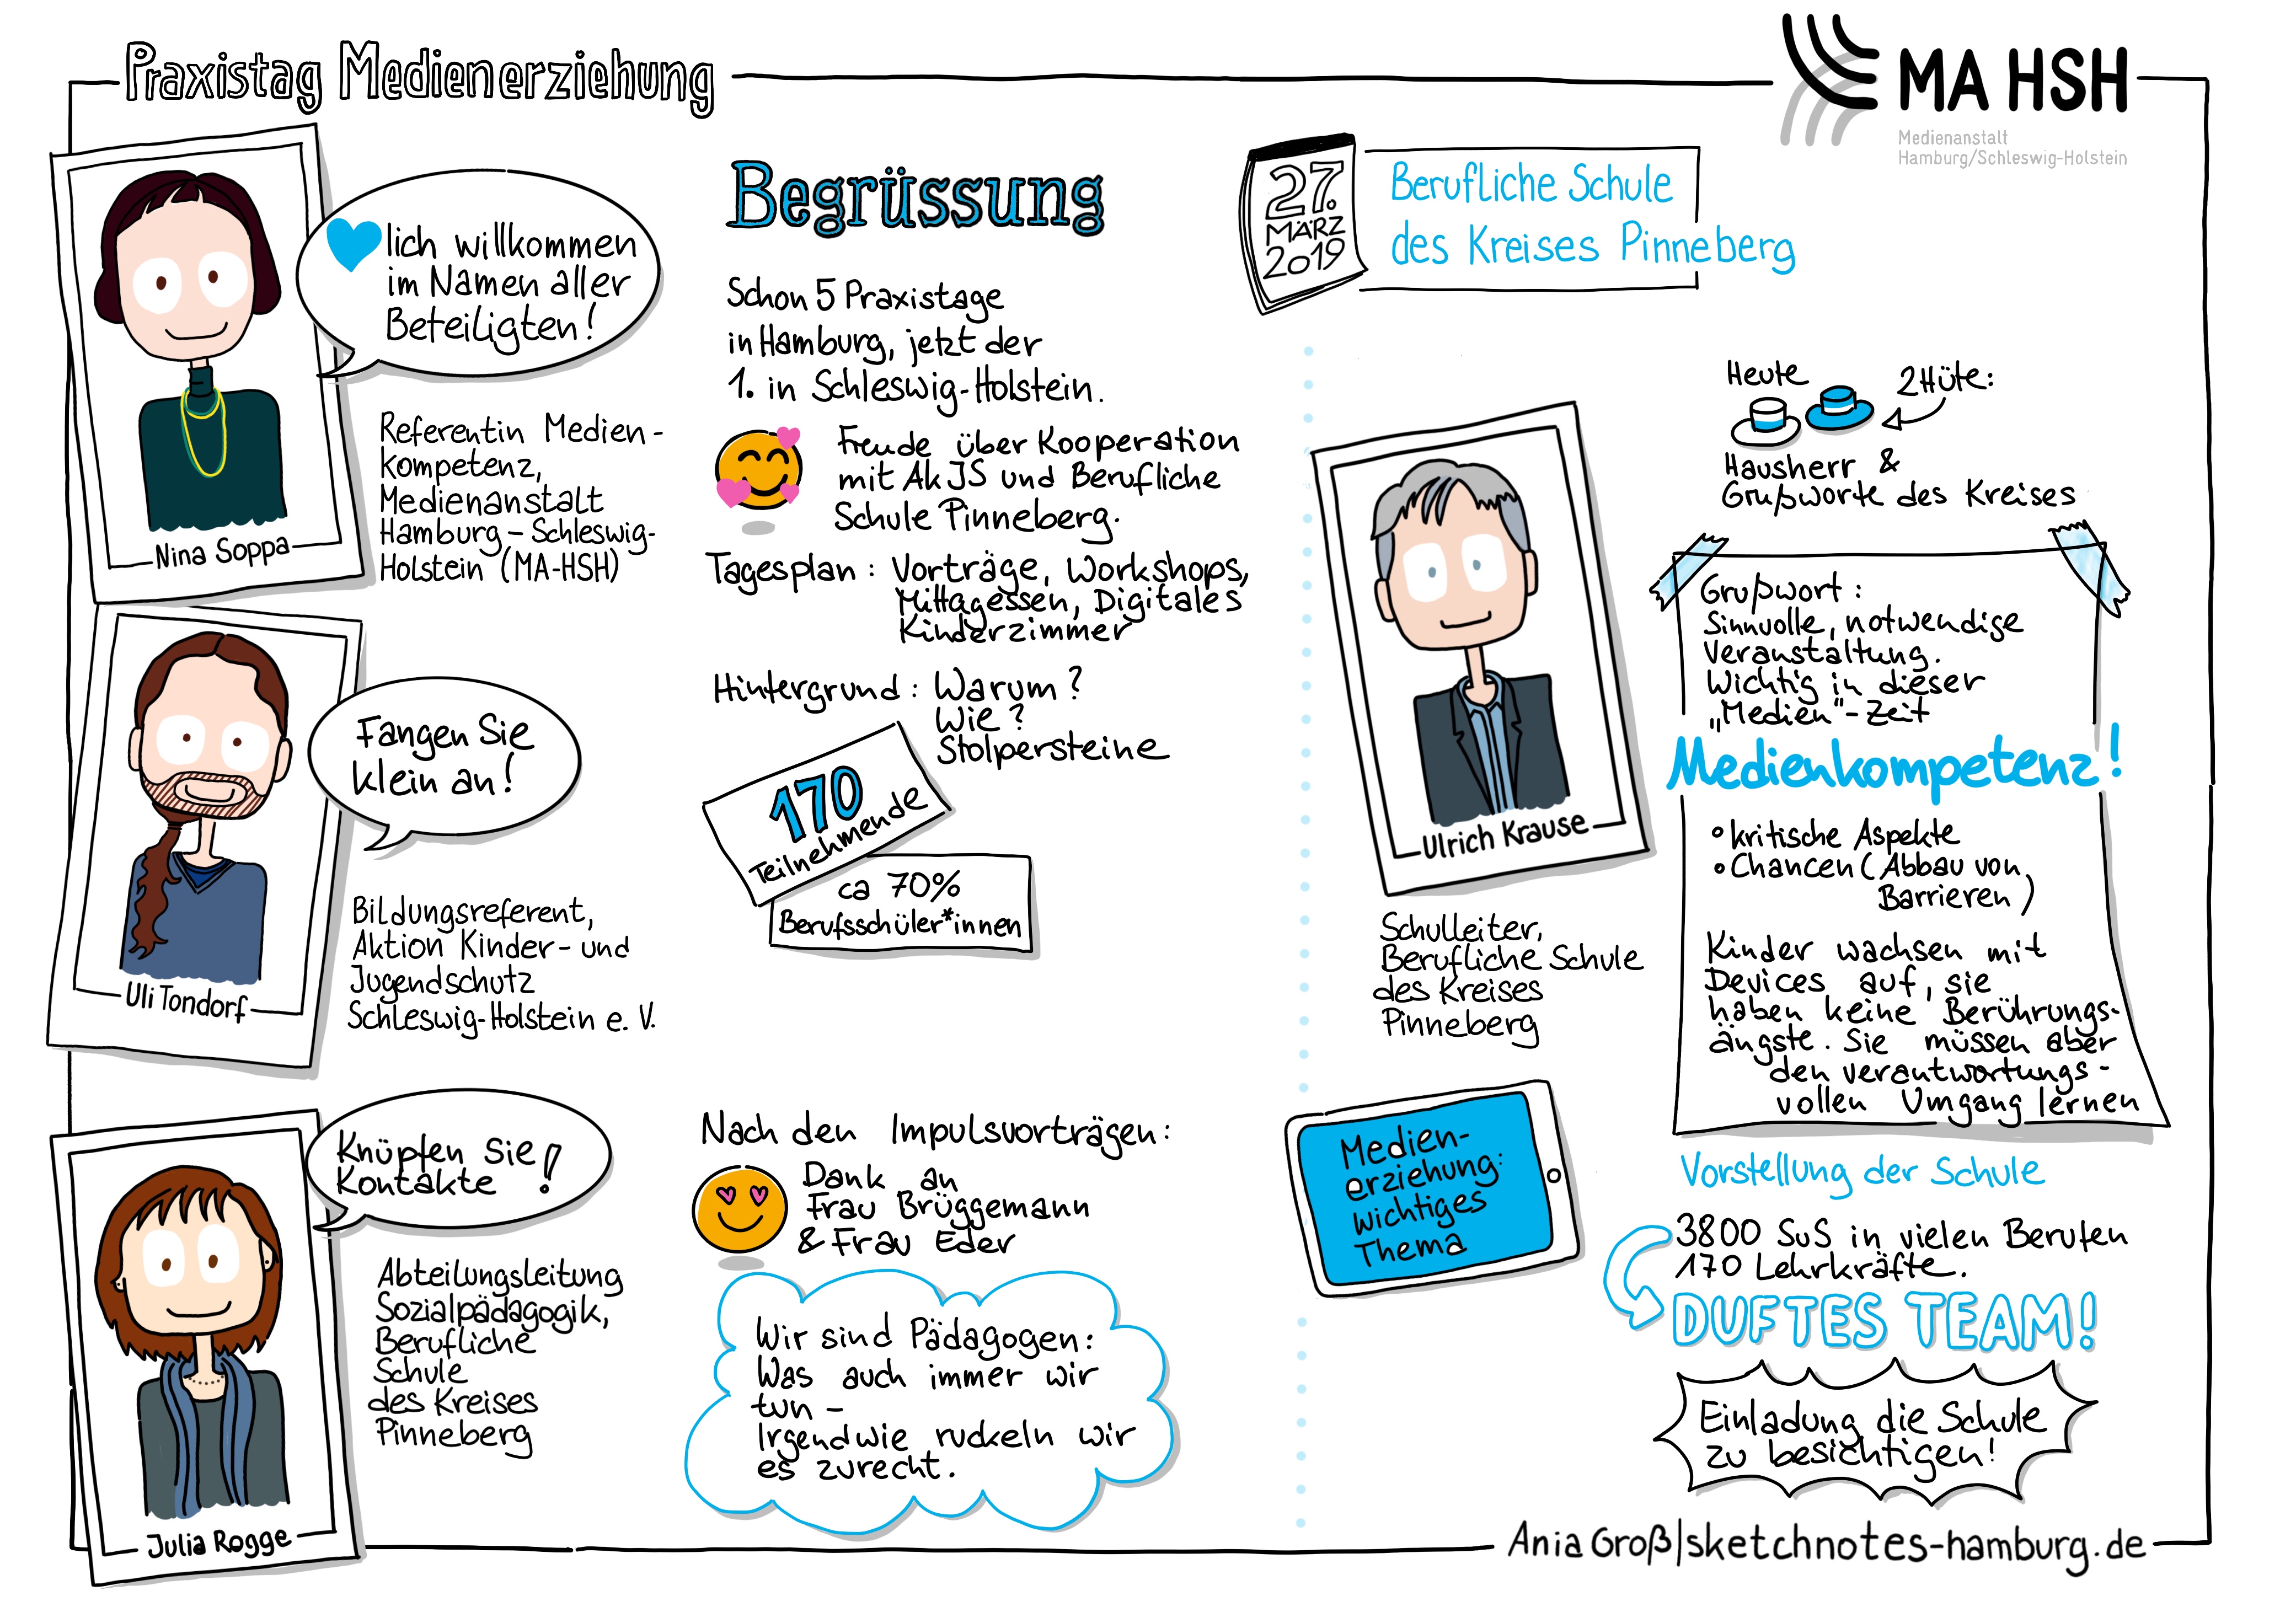 Praxistag Medienerziehung
MA HSH
Medienanstalt
Hamburg/Schleswig-Holstein
lich willkommen
im Namen aller
Beteiligten!
Nina Soppa
Referentin Medien-
kompetenz,
Medienanstalt
Hamburg-Schleswig-
Holstein (MA-HSH)
Fangen Sie
klein an!
Uli Tondorf
Bildungsreferent,
Aktion Kinder- und
Jugendschutz
Schleswig-Holstein e. V.
Knüpfen Sie
Kontakte !
Julia Rogge
Abteilungsleitung
Sozialpädagogik,
Berufliche
Schule
des Kreises
Pinneberg
Begrüssung
Schon 5 Praxistage
in Hamburg, jetzt der
1. in Schleswig-Holstein.
Freude über Kooperation
mit AkJS und Berufliche
Schule Pinneberg.
Tagesplan: Vorträge, Workshops,
Mittagessen, Digitales
Kinderzimmer
Hintergrund: Warum?
Wie?
Stolpersteine
170
Teilnehmende
ca 70%
Berufsschüler*innen
Nach den Impulsvorträgen:
Dank an
Frau Brüggemann
& Frau Eder
Wir sind Pädagogen:
Was auch immer wir
tun -
Irgendwie ruckeln wir
es zurecht.
27.
MÄRZ
2019
Berufliche Schule
des Kreises Pinneberg
Ulrich Krause
Schulleiter,
Berufliche Schule
des Kreises
Pinneberg
Medien-
erziehung:
wichtiges
Thema
Heute 2 Hüte:
Hausherr &
Grußworte des Kreises
Grußwort:
Sinnvolle, notwendige
Veranstaltung.
Wichtig in dieser
„Medien"-Zeit
Medienkompetenz!
• kritische Aspekte
• Chancen (Abbau von
Barrieren)
Kinder wachsen mit
Devices auf, sie
haben keine Berührungs-
ängste. Sie müssen aber
den verantwortungs-
vollen Umgang lernen
Vorstellung der Schule
3800 SuS in vielen Berufen
170 Lehrkräfte.
DUFTES TEAM!
Einladung die Schule
zu besichtigen!
Ania Groß|sketchnotes-hamburg.de